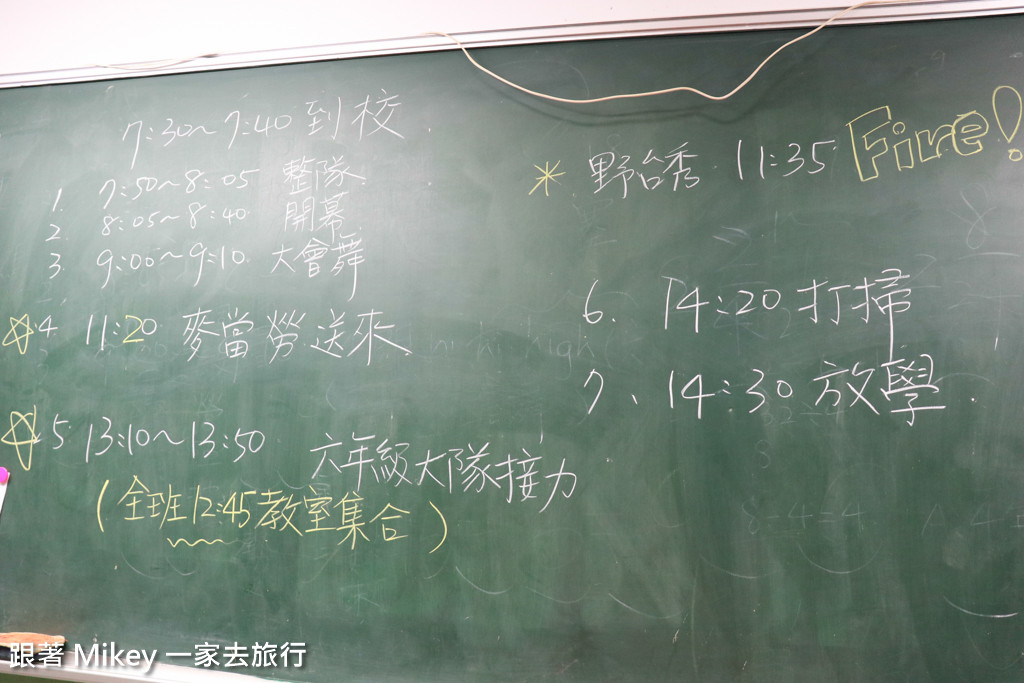 7:30~7:40 到校
1. 7:50~8:05 整隊
2. 8:05~8:40 開幕
3. 9:00~9:10 大會舞
☆4 11:20 麥當勞送來
☆5 13:10~13:50 六年級大隊接力
(全班12:45教室集合)
* 野台秀 11:35 Fire!
6. 14:20 打掃
7、14:30 放學
跟著 Mikey 一家去旅行